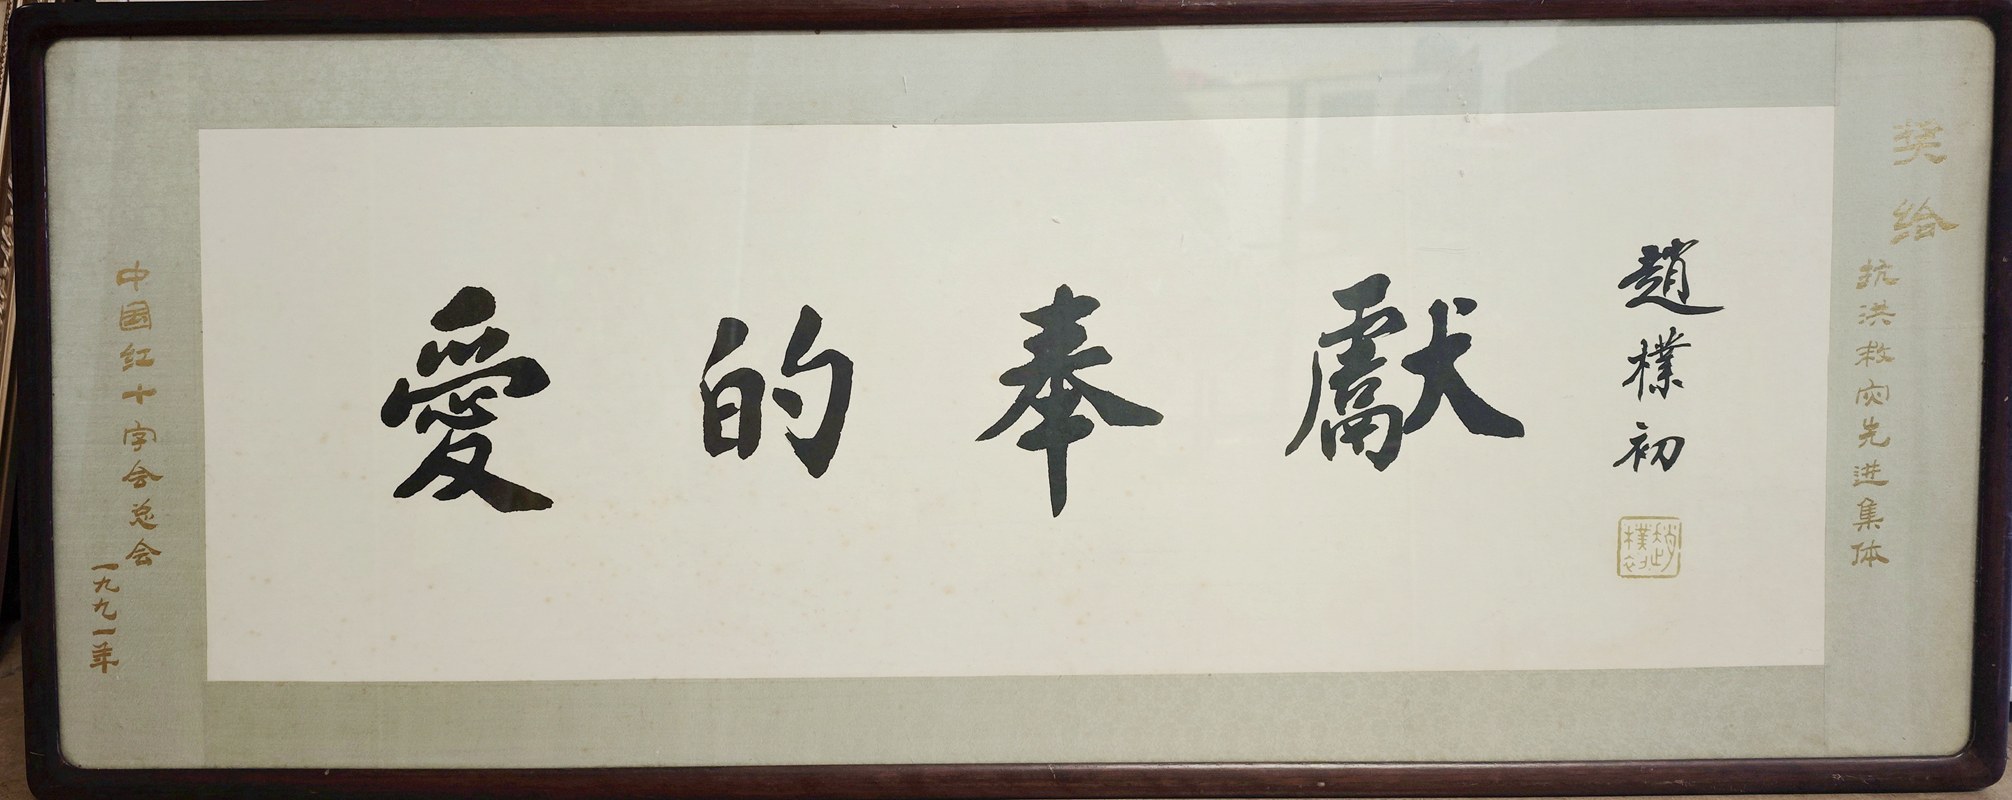 愛的奉獻
趙樸初
趙樸初
奖给
抗洪救灾先进集体
中国红十字会总会
一九九一年